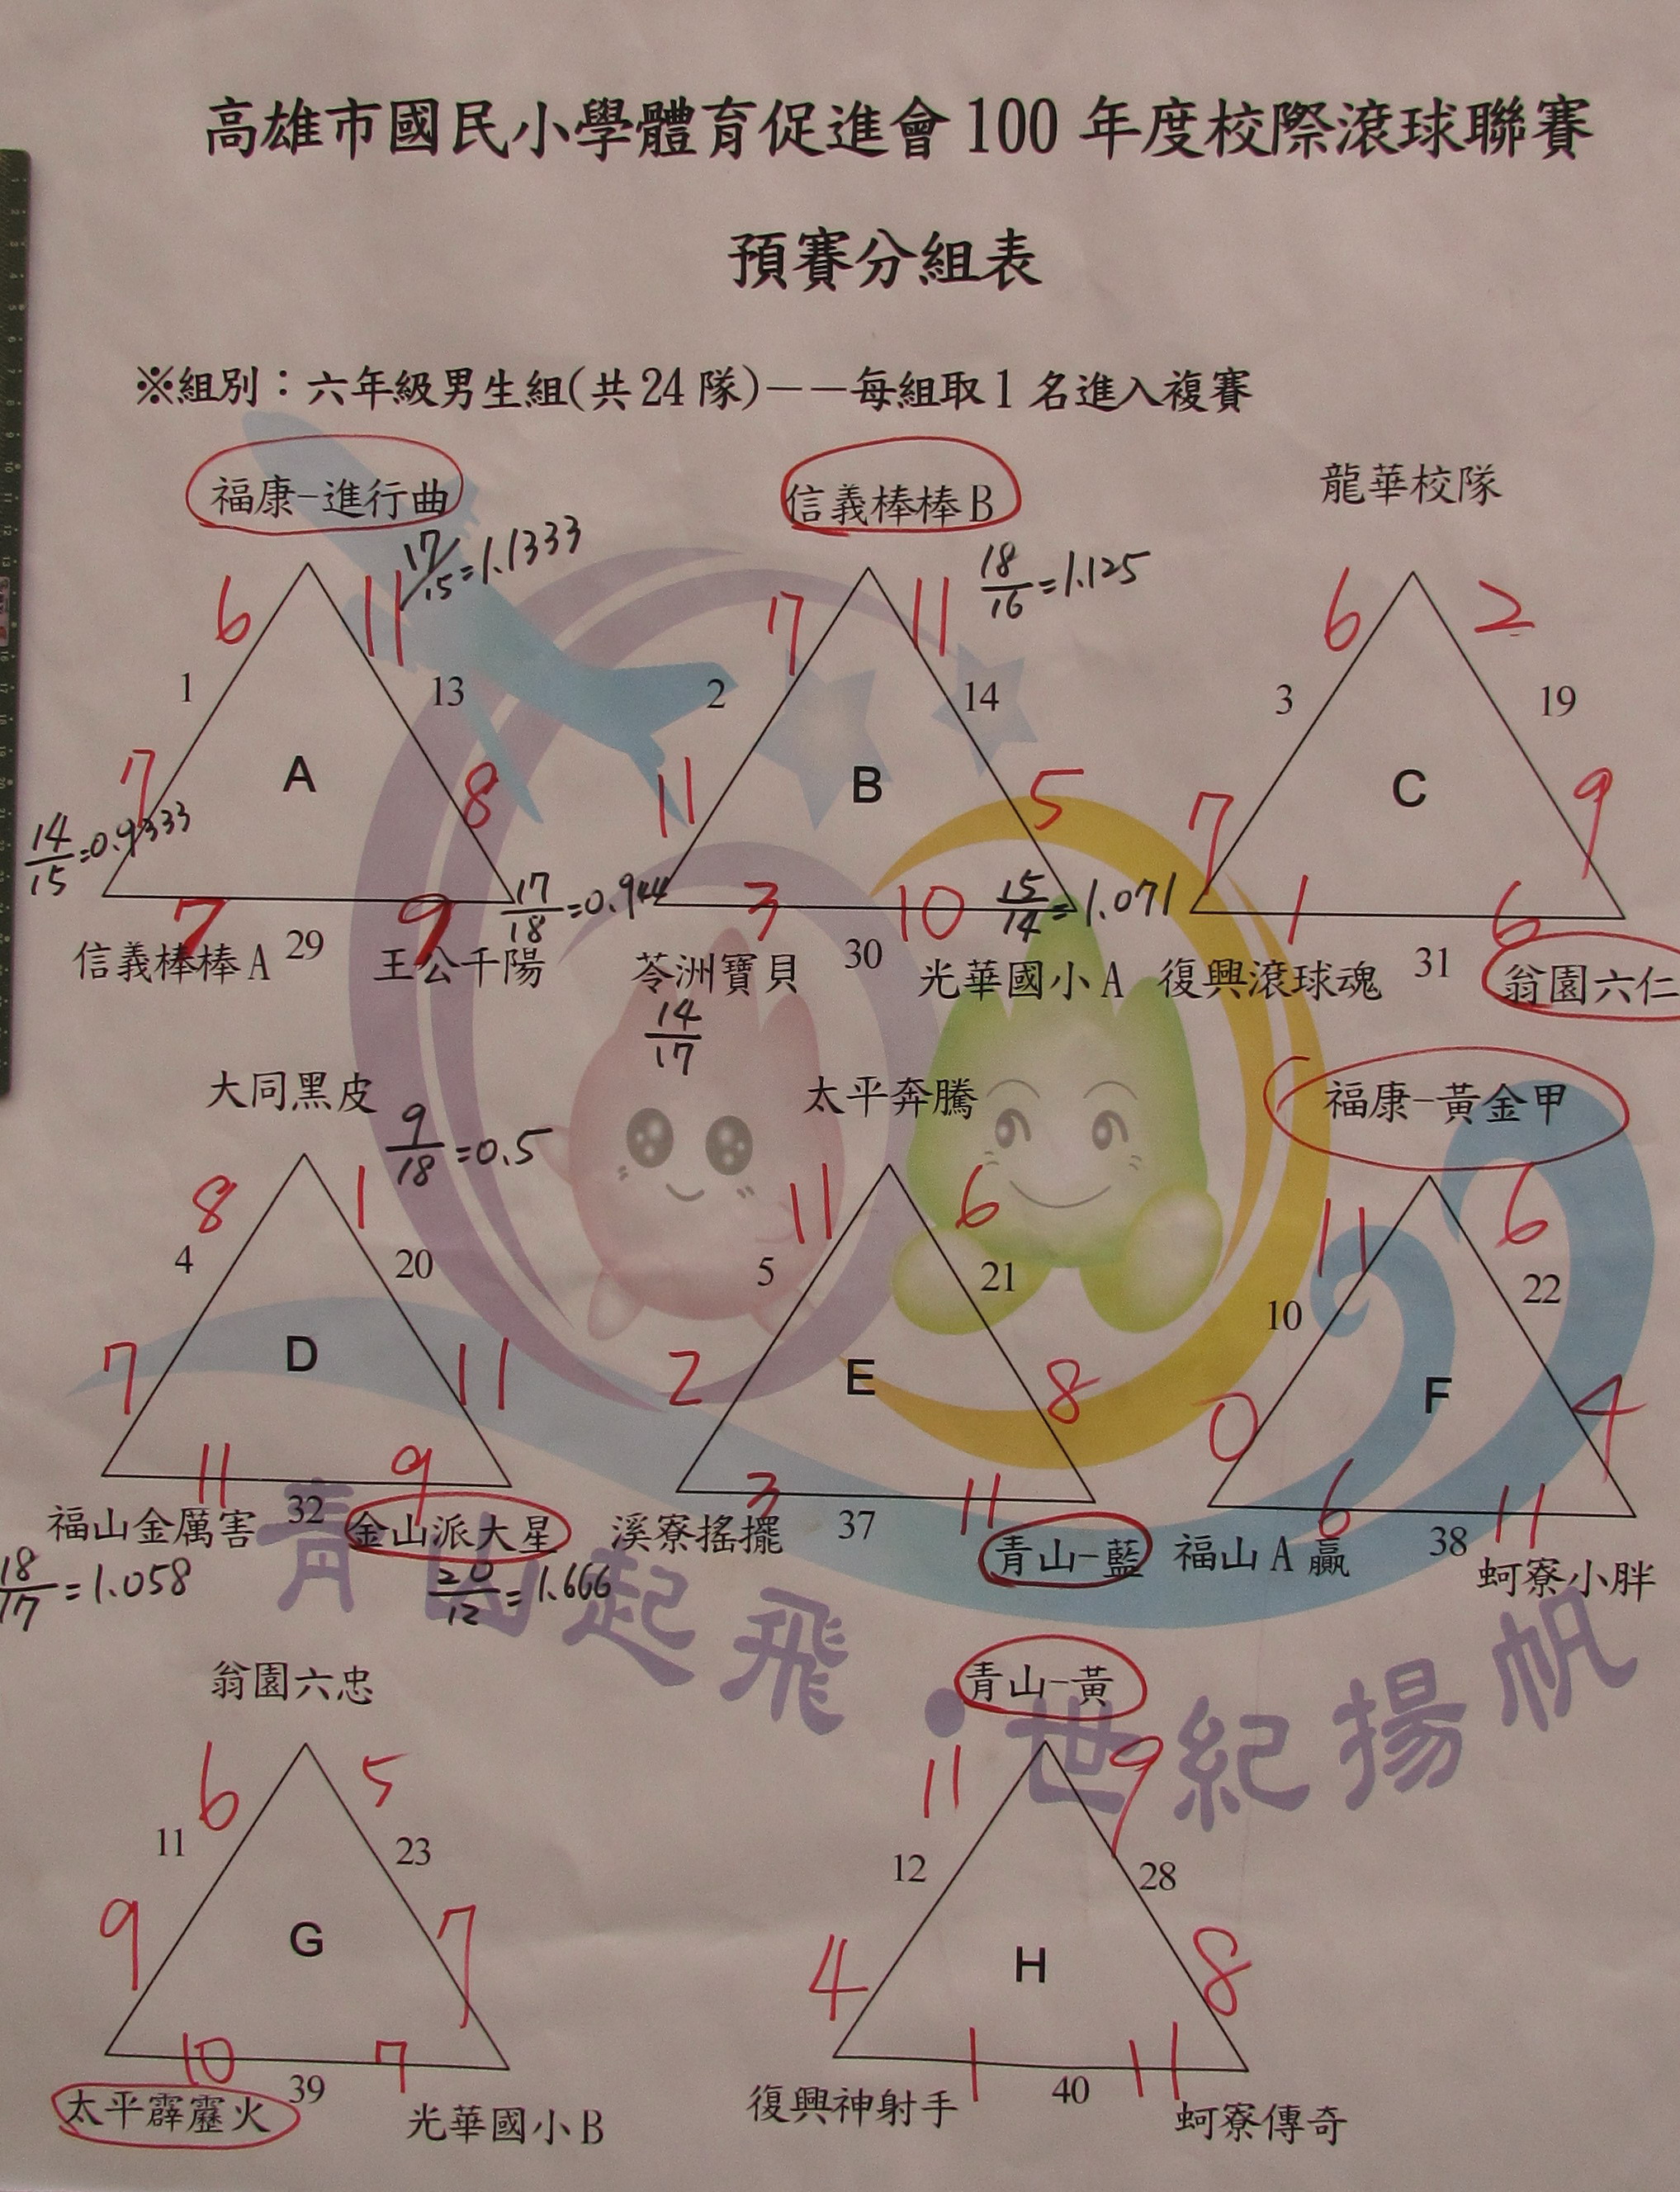 高雄市國民小學體育促進會 100 年度校際滾球聯賽
預賽分組表
※組別：六年級男生組(共 24 隊)－－每組取 1 名進入複賽
福康-進行曲
17/15=1.1333
6 11
1 13
A
7 8
14/15=0.9333
7 9
17/18=0.944
信義棒棒 A 29 王公千陽
信義棒棒 B
18/16=1.125
7 11
2 14
B
11 5
3 10
15/14=1.071
苓洲寶貝 30 光華國小 A
14/17
龍華校隊
6 2
3 19
C
7 9
1 6
復興滾球魂 31 翁園六仁
大同黑皮
9/18=0.5
8 1
4 20
D
7 11
11 9
福山金厲害 32 金山派大星
18/17=1.058
20/12=1.666
太平奔騰
11 6
5 21
E
2 8
3 11
溪寮搖擺 37 青山-藍
福康-黃金甲
11 6
10 22
F
0 4
6 11
福山 A 贏 38 蚵寮小胖
青山起飛・世紀揚帆
翁園六忠
6 5
11 23
G
9 7
10 7
太平霹靂火 39 光華國小 B
青山-黃
11 9
12 28
H
4 8
1 11
復興神射手 40 蚵寮傳奇